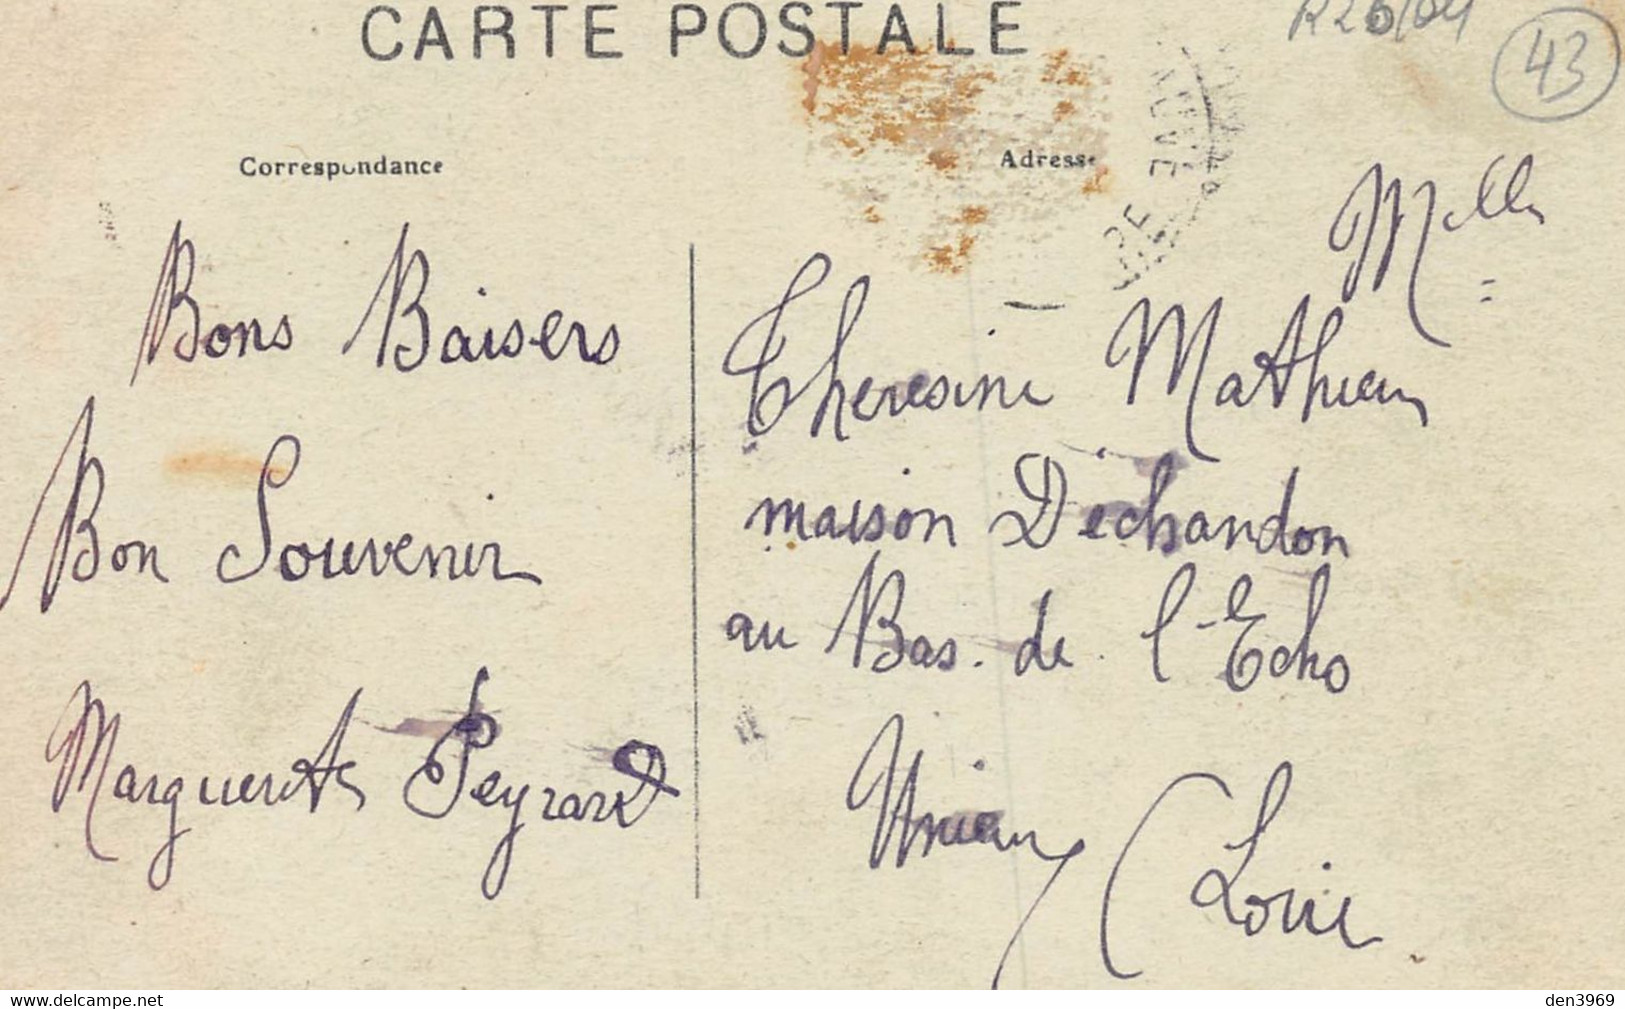 CARTE POSTALE
43
Correspondance
Adresse
Melle
Bons Baisers
Theresine Mathieu
Bon Souvenir
maison Déchandon
au Bas. de l'Echo
Marguerite Peyrard
Unieux (Loire
www.delcampe.net
den3969